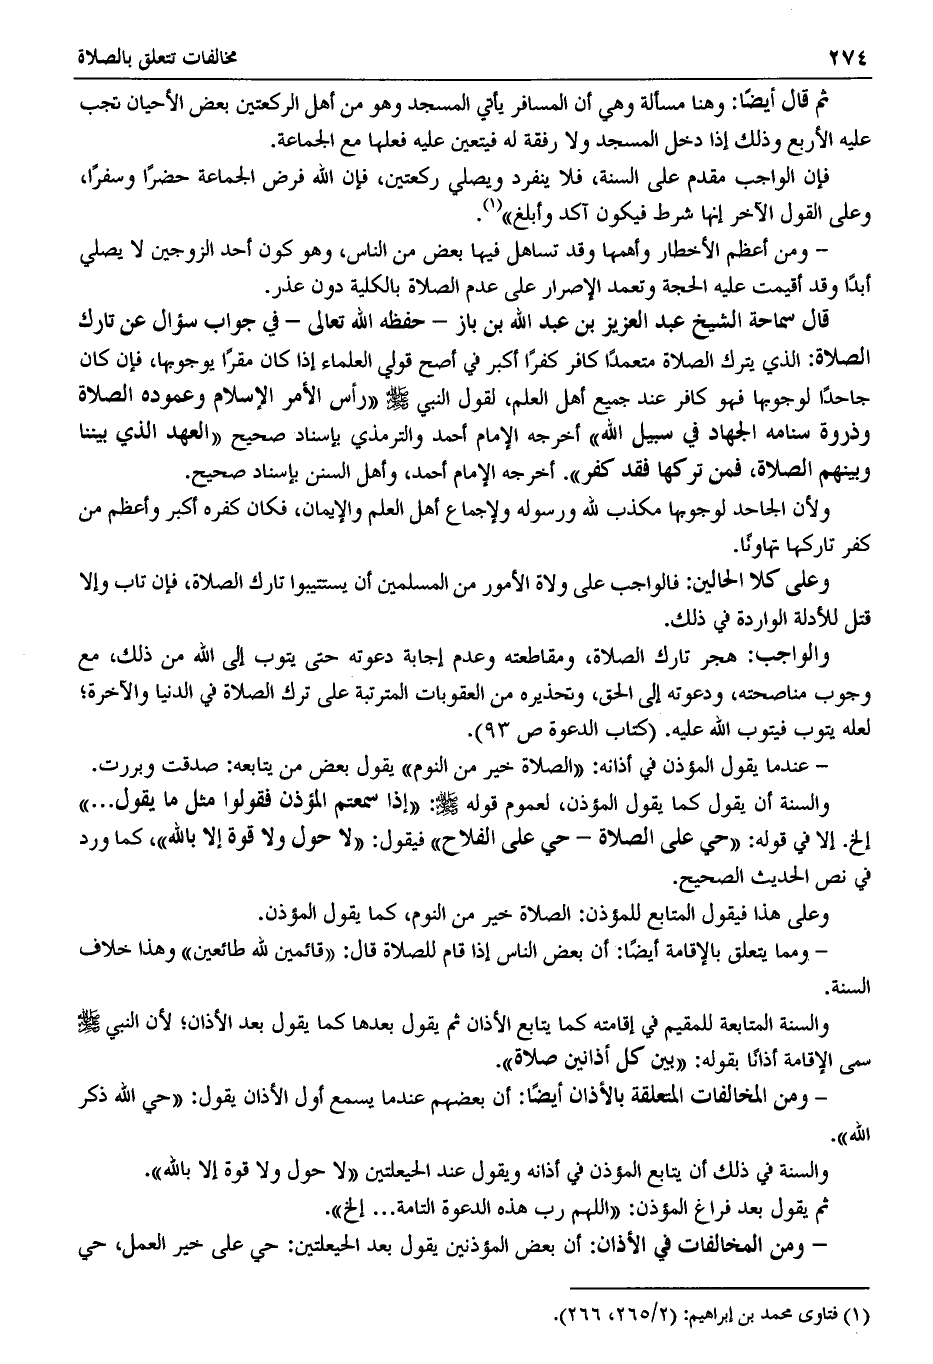 ٢٧٤ مخالفات تتعلق بالصلاة
ثم قال أيضًا: وهنا مسألة وهي أن المسافر يأتي المسجد وهو من أهل الركعتين بعض الأحيان تجب
عليه الأربع وذلك إذا دخل المسجد ولا رفقة له فيتعين عليه فعلها مع الجماعة.
فإن الواجب مقدم على السنة، فلا ينفرد ويصلي ركعتين، فإن الله فرض الجماعة حضرًا وسفرًا،
وعلى القول الآخر إنها شرط فيكون آكد وأبلغ»(١).
– ومن أعظم الأخطار وأهمها وقد تساهل فيها بعض من الناس، وهو كون أحد الزوجين لا يصلي
أبدًا وقد أقيمت عليه الحجة وتعمد الإصرار على عدم الصلاة بالكلية دون عذر.
قال سماحة الشيخ عبد العزيز بن عبد الله بن باز – حفظه الله تعالى – في جواب سؤال عن تارك
الصلاة: الذي يترك الصلاة متعمدًا كافر كفرًا أكبر في أصح قولي العلماء إذا كان مقرًا بوجوبها، فإن كان
جاحدًا لوجوبها فهو كافر عند جميع أهل العلم، لقول النبي ﷺ «رأس الأمر الإسلام وعموده الصلاة
وذروة سنامه الجهاد في سبيل الله» أخرجه الإمام أحمد والترمذي بإسناد صحيح «العهد الذي بيننا
وبينهم الصلاة، فمن تركها فقد كفر». أخرجه الإمام أحمد، وأهل السنن بإسناد صحيح.
ولأن الجاحد لوجوبها مكذب لله ورسوله ولإجماع أهل العلم والإيمان، فكان كفره أكبر وأعظم من
كفر تاركها تهاونًا.
وعلى كلا الحالين: فالواجب على ولاة الأمور من المسلمين أن يستتيبوا تارك الصلاة، فإن تاب وإلا
قتل للأدلة الواردة في ذلك.
والواجب: هجر تارك الصلاة، ومقاطعته وعدم إجابة دعوته حتى يتوب إلى الله من ذلك، مع
وجوب مناصحته، ودعوته إلى الحق، وتحذيره من العقوبات المترتبة على ترك الصلاة في الدنيا والآخرة؛
لعله يتوب فيتوب الله عليه. (كتاب الدعوة ص ٩٣).
– عندما يقول المؤذن في أذانه: «الصلاة خير من النوم» يقول بعض من يتابعه: صدقت وبررت.
والسنة أن يقول كما يقول المؤذن، لعموم قوله ﷺ: «إذا سمعتم المؤذن فقولوا مثل ما يقول...»
إلخ. إلا في قوله: «حي على الصلاة – حي على الفلاح» فيقول: «لا حول ولا قوة إلا بالله»، كما ورد
في نص الحديث الصحيح.
وعلى هذا فيقول المتابع للمؤذن: الصلاة خير من النوم، كما يقول المؤذن.
– ومما يتعلق بالإقامة أيضًا: أن بعض الناس إذا قام للصلاة قال: «قائمين لله طائعين» وهذا خلاف
السنة.
والسنة المتابعة للمقيم في إقامته كما يتابع الأذان ثم يقول بعدها كما يقول بعد الأذان؛ لأن النبي ﷺ
سمى الإقامة أذانًا بقوله: «بين كل أذانين صلاة».
– ومن المخالفات المتعلقة بالأذان أيضًا: أن بعضهم عندما يسمع أول الأذان يقول: «حي الله ذكر
الله».
والسنة في ذلك أن يتابع المؤذن في أذانه ويقول عند الحيعلتين «لا حول ولا قوة إلا بالله».
ثم يقول بعد فراغ المؤذن: «اللهم رب هذه الدعوة التامة... إلخ».
– ومن المخالفات في الأذان: أن بعض المؤذنين يقول بعد الحيعلتين: حي على خير العمل، حي
(١) فتاوى محمد بن إبراهيم: (٢/٢٦٥، ٢٦٦).